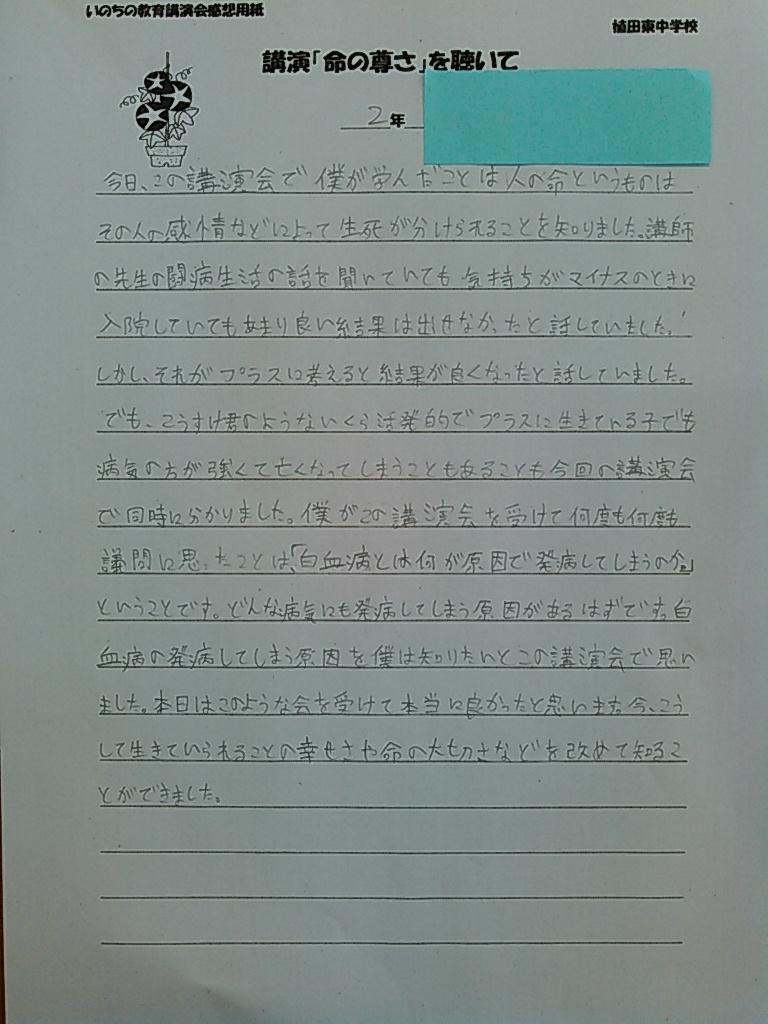 いのちの教育講演会感想用紙
植田東中学校
講演「命の尊さ」を聴いて
2年
今日、この講演会で僕が学んだことは人の命というものは
その人の感情などによって生死が分けられることを知りました。講師
の先生の闘病生活の話を聞いていても気持ちがマイナスのときに
入院していてもあまり良い結果は出せなかったと話していました。
しかし、それがプラスに考えると結果が良くなったと話していました。
でも、こうすけ君のようないくら活発的でプラスに生きている子でも
病気の方が強くて亡くなってしまうこともあることも今回の講演会
で同時に分かりました。僕がこの講演会を受けて何度も何度も
議問に思ったことは、「白血病とは何が原因で発病してしまうのか。」
ということです。どんな病気にも発病してしまう原因があるはずです。白
血病の発病してしまう原因を僕は知りたいとこの講演会で思い
ました。本日はこのような会を受けて本当に良かったと思います。今、こう
して生きていられることの幸せさや命の大切さなどを改めて知るこ
とができました。